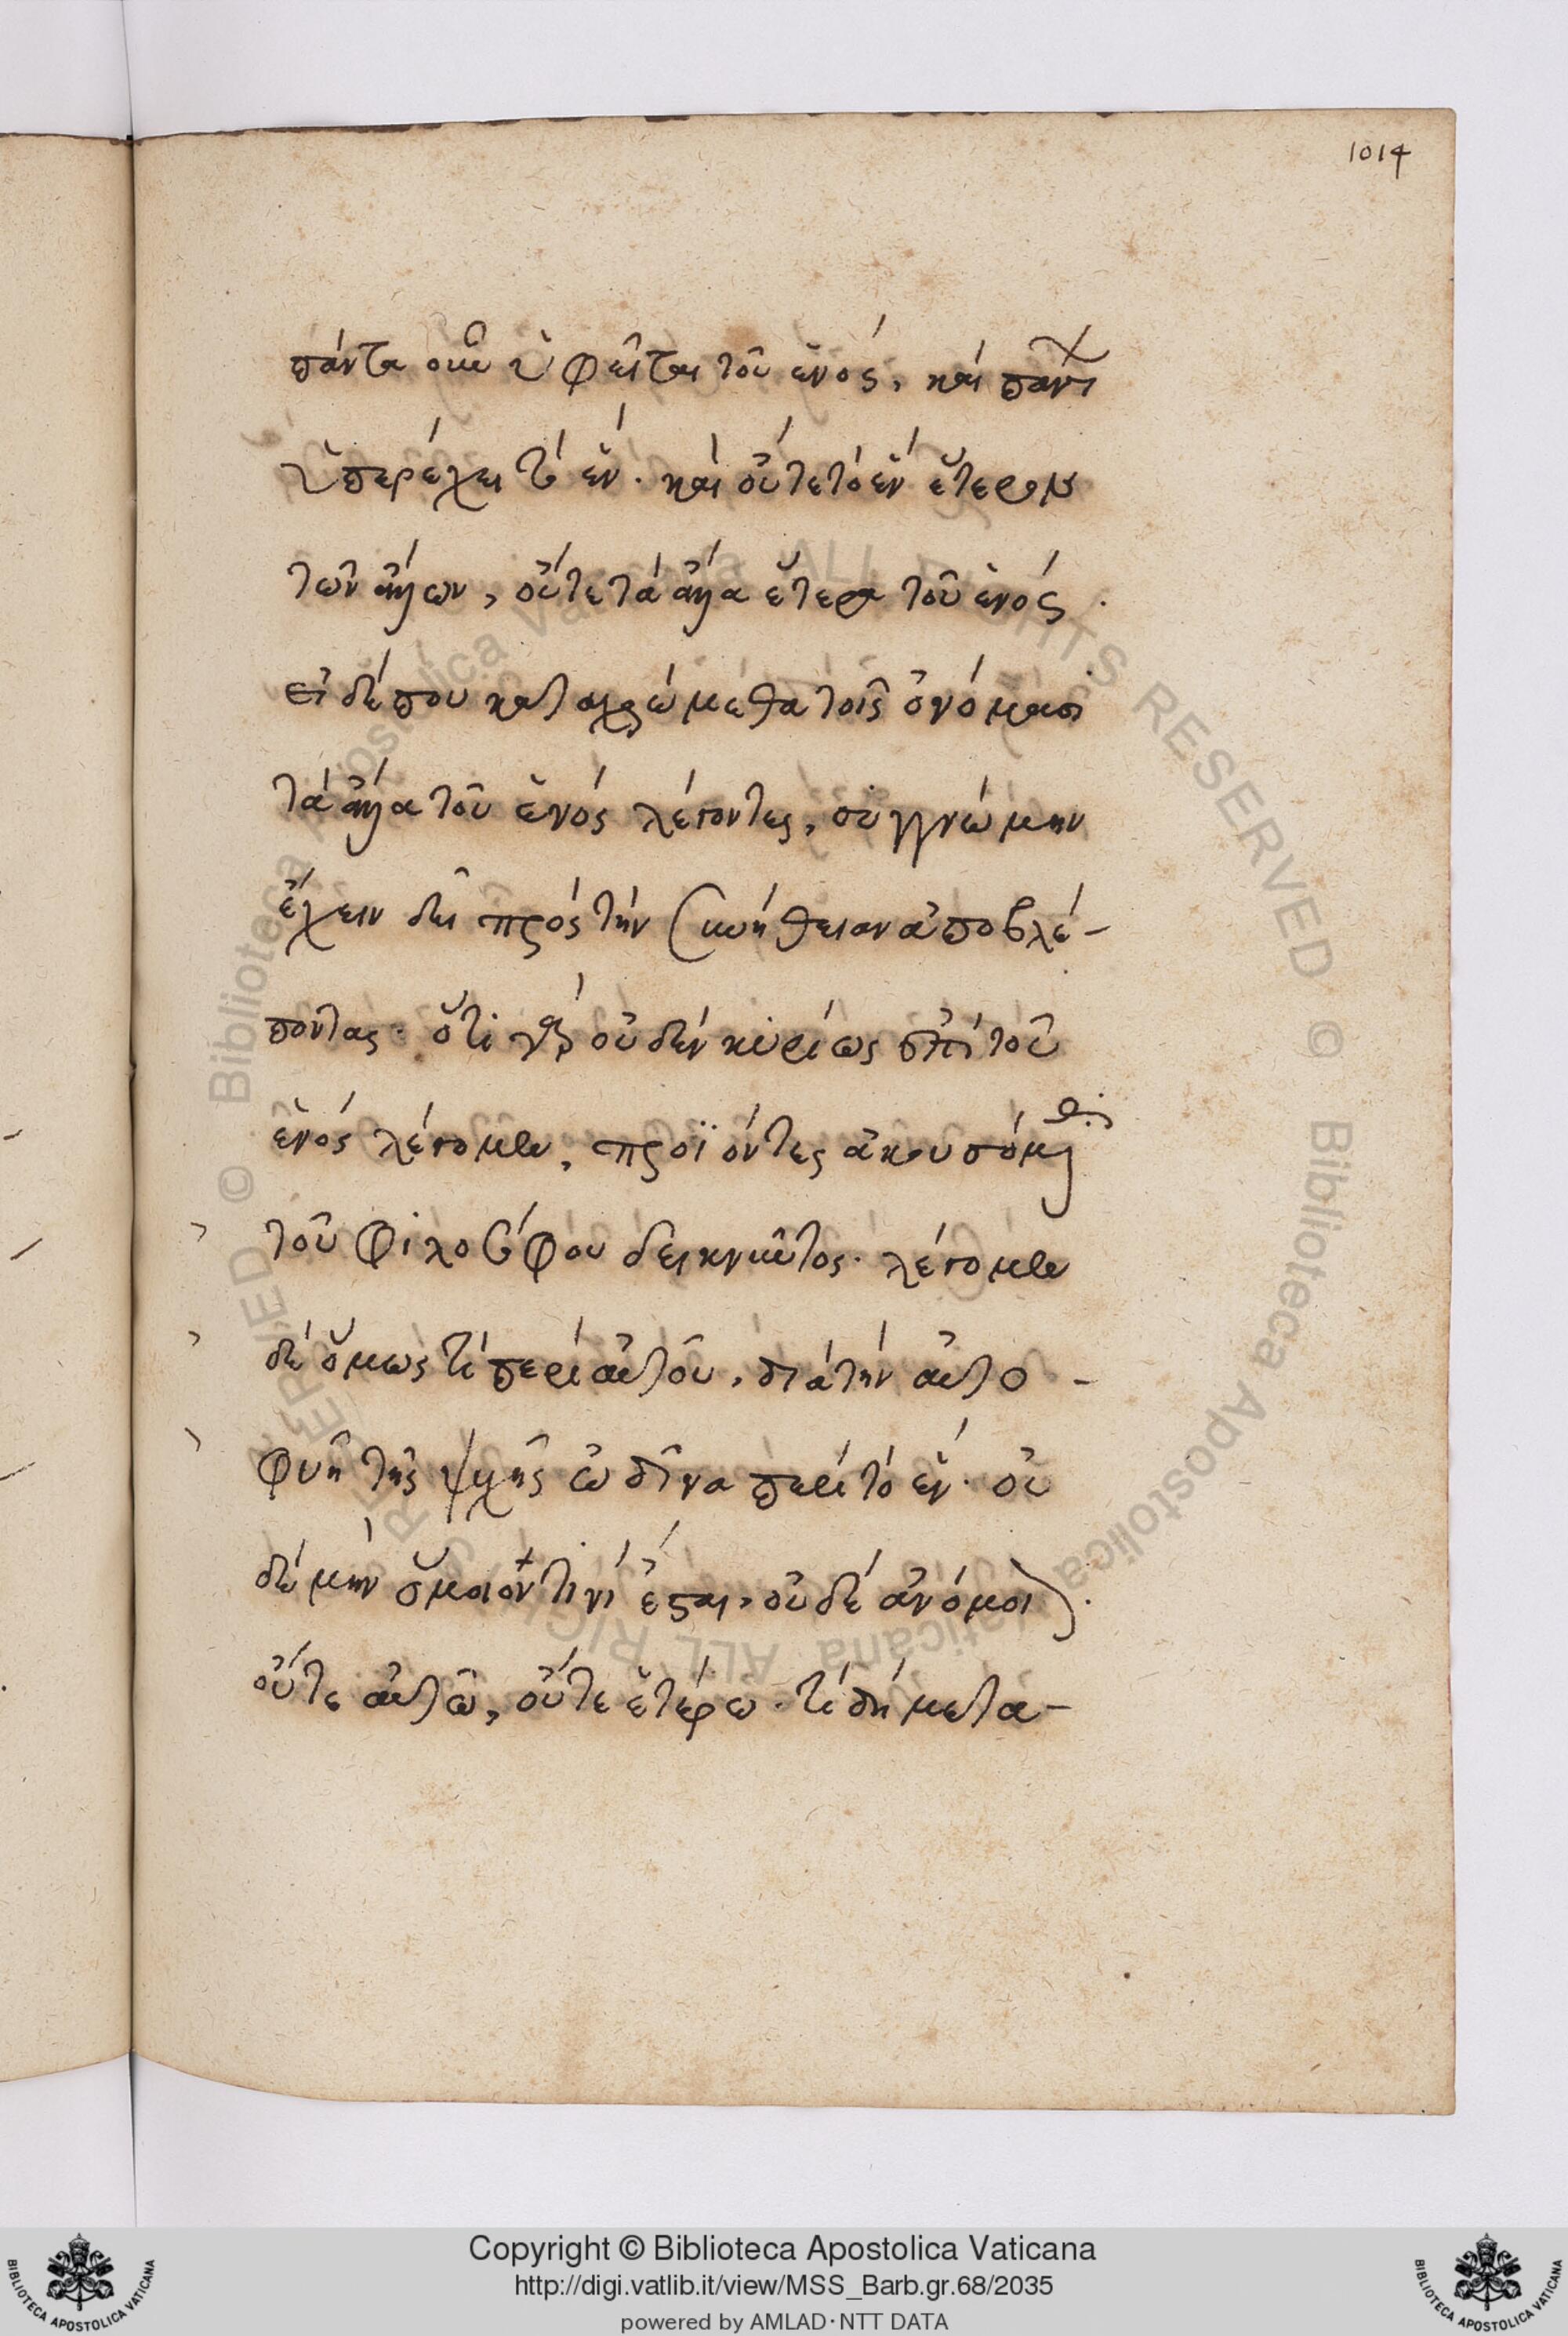 1014
πάντα οὖν ὑφεῖται τοῦ ἑνός, καὶ πάντων
ὑπερέχει τὸ ἕν. καὶ οὔτε τὸ ἓν ἕτερον
τῶν ἄλλων, οὔτε τὰ ἄλλα ἕτερα τοῦ ἑνός.
εἰ δέ που καταχρώμεθα τοῖς ὀνόμασι
τὰ ἄλλα τοῦ ἑνὸς λέγοντες, συγγνώμην
ἔχειν δεῖ πρὸς τὴν συνήθειαν ἀποβλέ-
ποντας. ὅτι γὰρ οὐδὲν κυρίως ἐπὶ τοῦ
ἑνὸς λέγομεν, προϊόντες ἀκουσόμεθα
τοῦ φιλοσόφου δεικνῦντος. λέγομεν
δὲ ὅμως τὶ περὶ αὐτοῦ, διὰ τὴν αὐτο-
φυῆ τῆς ψυχῆς ὠδῖνα περὶ τὸ ἕν. οὐ
δὲ μὴν ὅμοιόν τινι ἔσται, οὐδὲ ἀνόμοιον.
οὔτε αὐτῶ, οὔτε ἑτέρω. τί δὴ μετα-
Copyright © Biblioteca Apostolica Vaticana
http://digi.vatlib.it/view/MSS_Barb.gr.68/2035
powered by AMLAD·NTT DATA
BIBLIOTECA APOSTOLICA VATICANA
BIBLIOTECA APOSTOLICA VATICANA
© Biblioteca Apostolica Vaticana ALL RIGHTS RESERVED © Biblioteca Apostolica Vaticana ALL RIGHTS RESERVED